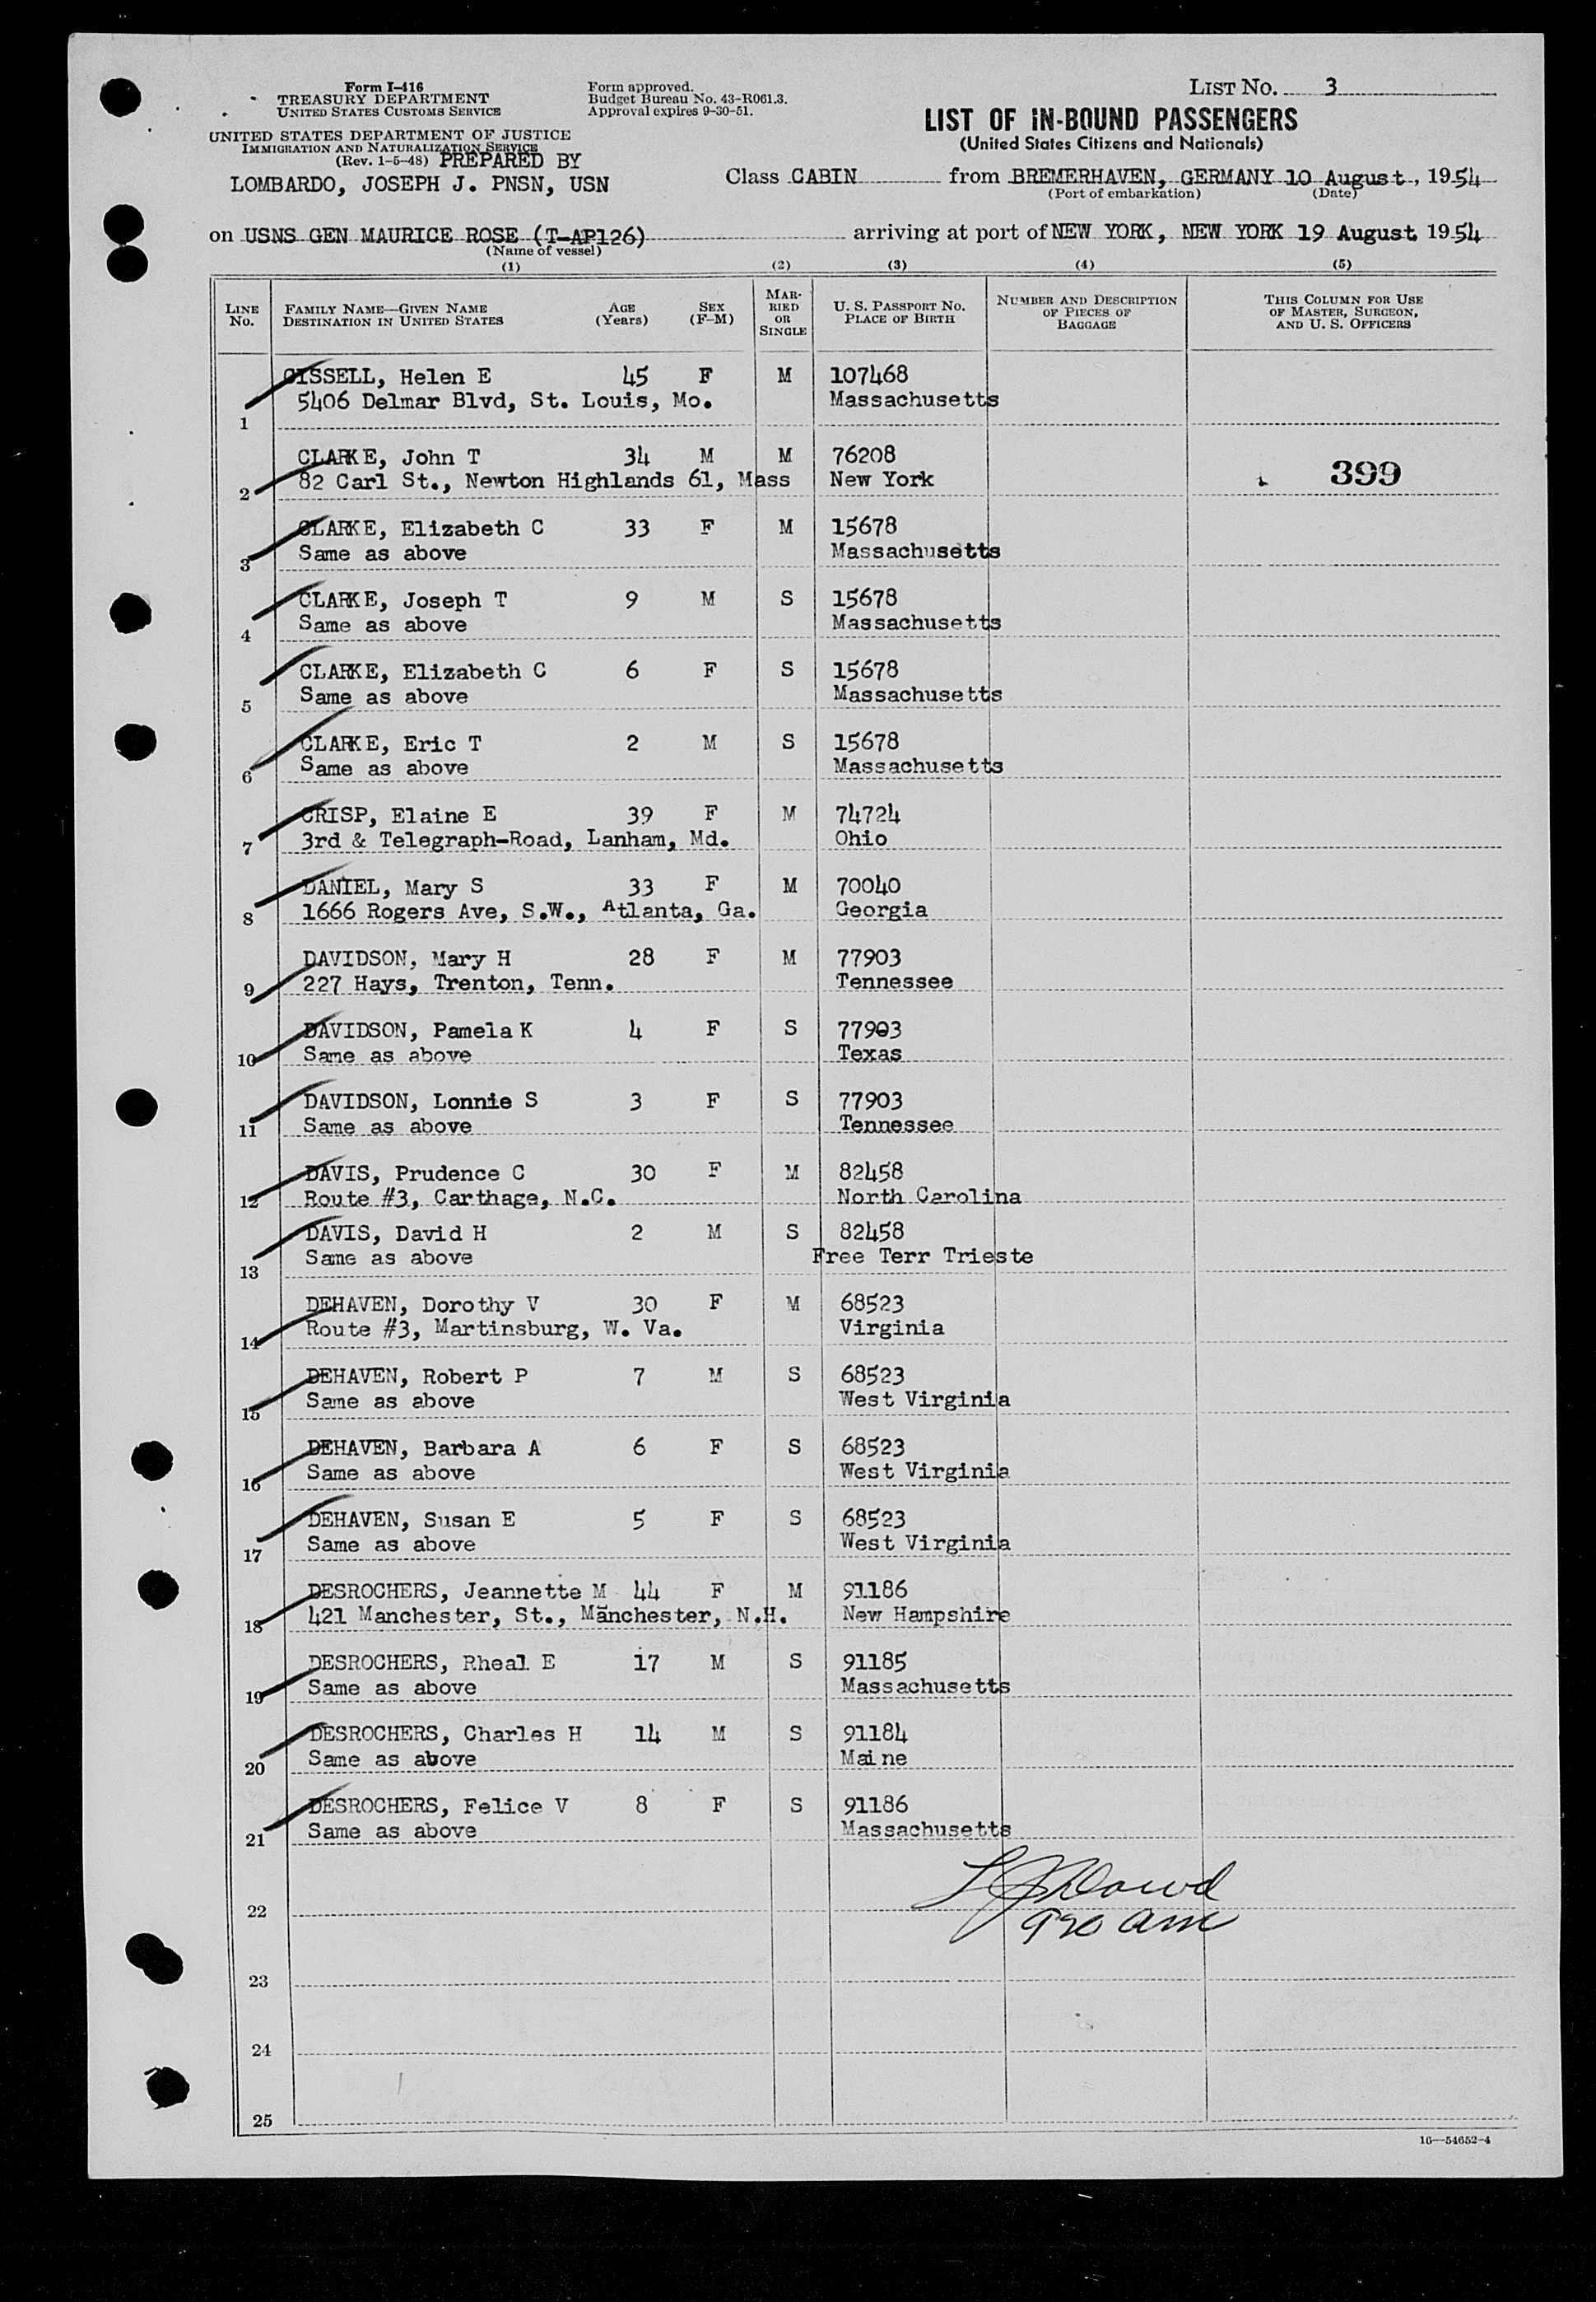 Form I-416
TREASURY DEPARTMENT
UNITED STATES CUSTOMS SERVICE
UNITED STATES DEPARTMENT OF JUSTICE
IMMIGRATION AND NATURALIZATION SERVICE
(Rev. 1-5-48) PREPARED BY
LOMBARDO, JOSEPH J. PNSN, USN
Form approved.
Budget Bureau No. 43-R061.3.
Approval expires 9-30-51.
LIST NO. 3
LIST OF IN-BOUND PASSENGERS
(United States Citizens and Nationals)
Class CABIN from BREMERHAVEN, GERMANY 10 August, 1954
(Port of embarkation) (Date)
on USNS GEN MAURICE ROSE (T-AP126) arriving at port of NEW YORK, NEW YORK 19 August 1954
(Name of vessel)
(1) (2) (3) (4) (5)
LINE NO. FAMILY NAME—GIVEN NAME DESTINATION IN UNITED STATES AGE (Years) SEX (F-M) MARRIED OR SINGLE U. S. PASSPORT NO. PLACE OF BIRTH NUMBER AND DESCRIPTION OF PIECES OF BAGGAGE THIS COLUMN FOR USE OF MASTER, SURGEON, AND U. S. OFFICERS
CISSELL, Helen E 45 F M 107468
1 5406 Delmar Blvd, St. Louis, Mo. Massachusetts
CLARKE, John T 34 M M 76208
2 82 Carl St., Newton Highlands 61, Mass New York 399
CLARKE, Elizabeth C 33 F M 15678
3 Same as above Massachusetts
CLARKE, Joseph T 9 M S 15678
4 Same as above Massachusetts
CLARKE, Elizabeth C 6 F S 15678
5 Same as above Massachusetts
CLARKE, Eric T 2 M S 15678
6 Same as above Massachusetts
CRISP, Elaine E 39 F M 74724
7 3rd & Telegraph-Road, Lanham, Md. Ohio
DANIEL, Mary S 33 F M 70040
8 1666 Rogers Ave, S.W., Atlanta, Ga. Georgia
DAVIDSON, Mary H 28 F M 77903
9 227 Hays, Trenton, Tenn. Tennessee
DAVIDSON, Pamela K 4 F S 77903
10 Same as above Texas
DAVIDSON, Lonnie S 3 F S 77903
11 Same as above Tennessee
DAVIS, Prudence C 30 F M 82458
12 Route #3, Carthage, N.C. North Carolina
DAVIS, David H 2 M S 82458
13 Same as above Free Terr Trieste
DEHAVEN, Dorothy V 30 F M 68523
14 Route #3, Martinsburg, W. Va. Virginia
DEHAVEN, Robert P 7 M S 68523
15 Same as above West Virginia
DEHAVEN, Barbara A 6 F S 68523
16 Same as above West Virginia
DEHAVEN, Susan E 5 F S 68523
17 Same as above West Virginia
DESROCHERS, Jeannette M 44 F M 91186
18 421 Manchester, St., Manchester, N.H. New Hampshire
DESROCHERS, Rheal E 17 M S 91185
19 Same as above Massachusetts
DESROCHERS, Charles H 14 M S 91184
20 Same as above Maine
DESROCHERS, Felice V 8 F S 91186
21 Same as above Massachusetts
22
920 am
23
24
25
16—54652-4